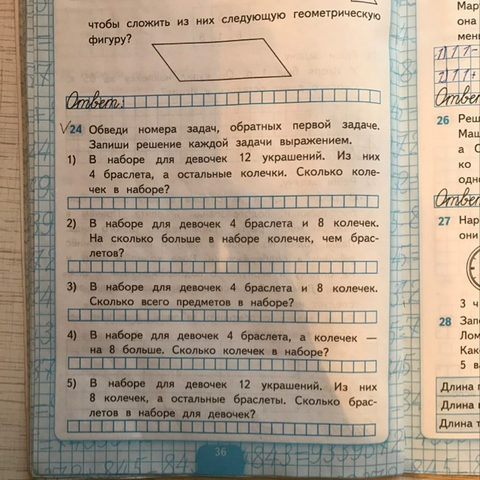 чтобы сложить из них следующую геометрическую
фигуру?
Ответ:
24 Обведи номера задач, обратных первой задаче.
Запиши решение каждой задачи выражением.
1) В наборе для девочек 12 украшений. Из них
4 браслета, а остальные колечки. Сколько коле-
чек в наборе?
2) В наборе для девочек 4 браслета и 8 колечек.
На сколько больше в наборе колечек, чем брас-
летов?
3) В наборе для девочек 4 браслета и 8 колечек.
Сколько всего предметов в наборе?
4) В наборе для девочек 4 браслета, а колечек —
на 8 больше. Сколько колечек в наборе?
5) В наборе для девочек 12 украшений. Из них
8 колечек, а остальные браслеты. Сколько брас-
летов в наборе для девочек?
36
она
26
а С
ко
одно
27 Нар
они
3 ч
28
5
Длина
Длина
Длина